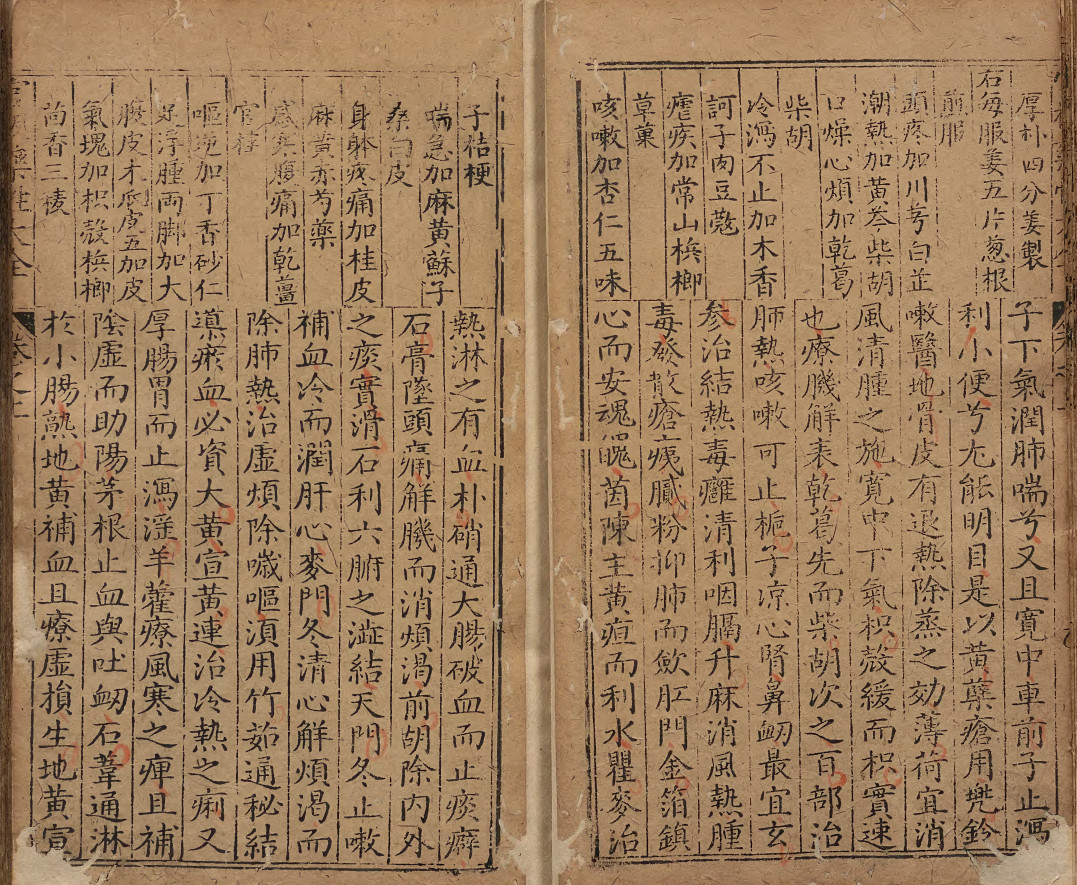 厚朴四分姜製
石每服姜五片葱根
煎服
頭疼加川芎白芷
潮熱加黃芩柴胡
口燥心煩加乾葛
柴胡
冷瀉不止加木香
訶子肉豆蔻
瘧疾加常山檳榔
草菓
咳嗽加杏仁五味
子下氣潤肺喘兮又且寬中車前子止瀉
利小便兮尤能明目是以黃蘗瘡用兠鈴
嗽醫地骨皮有退熱除蒸之効薄荷宜消
風清腫之施寬中下氣枳殼緩而枳實速
也療肌解表乾葛先而柴胡次之百部治
肺熱咳嗽可止梔子涼心腎鼻衂最宜玄
參治結熱毒癰清利咽膈升麻消風熱腫
毒發散瘡痍膩粉抑肺而歛肛門金箔鎮
心而安魂魄茵陳主黃疸而利水瞿麥治
子桔梗
喘急加麻黃蘇子
桑白皮
身躰疼痛加桂皮
麻黃赤芍藥
感寒腹痛加乾薑
官桂
嘔逆加丁香砂仁
足浮腫両脚加大
腹皮木瓜皮五加皮
氣塊加枳殼檳榔
茴香三稜
熱淋之有血朴硝通大腸破血而止痰癖
石膏墜頭痛解肌而消煩渴前胡除內外
之痰實滑石利六腑之澁結天門冬止嗽
補血冷而潤肝心麥門冬清心解煩渴而
除肺熱治虛煩除噦嘔須用竹茹通秘結
導瘀血必資大黃宣黃連治冷熱之痢又
厚腸胃而止瀉淫羊藿療風寒之痺且補
陰虛而助陽茅根止血與吐衂石葦通淋
於小腸熟地黃補血且療虛損生地黃宣
藥性大全
卷之二